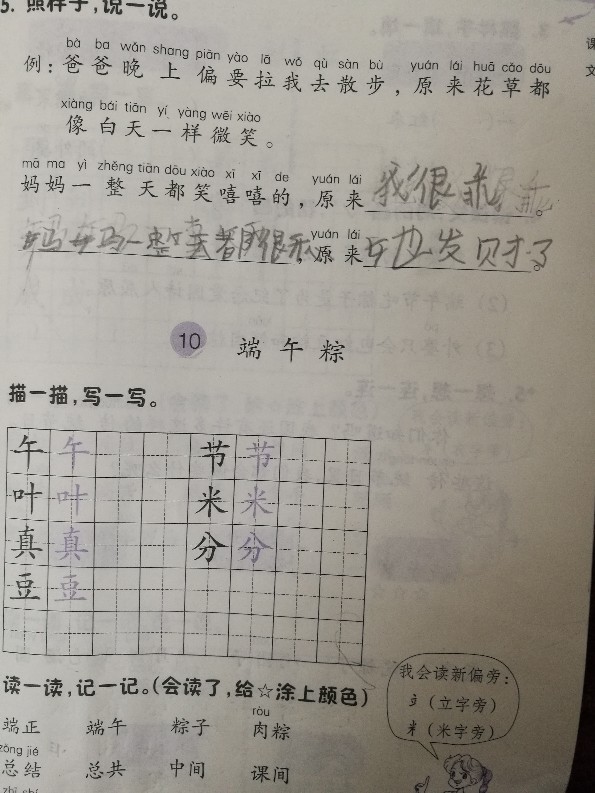 5. 照样子,说一说。
bà ba wǎn shang piān yào lā wǒ qù sàn bù yuán lái huā cǎo dōu
例:爸爸晚上偏要拉我去散步,原来花草都
xiàng bái tiān yí yàng wēi xiào
像白天一样微笑。
mā ma yì zhěng tiān dōu xiào xī xī de yuán lái
妈妈一整天都笑嘻嘻的,原来我很乖。
yuán lái
妈妈一整天都很,原来她发财了。
10 端午粽
描一描,写一写。
午 午 节 节
叶 叶 米 米
真 真 分 分
豆 豆
我会读新偏旁:
(立字旁)
(米字旁)
读一读,记一记。(会读了,给☆涂上颜色)
ròu
端正 端午 粽子 肉粽
zǒng jié
总结 总共 中间 课间
课
文